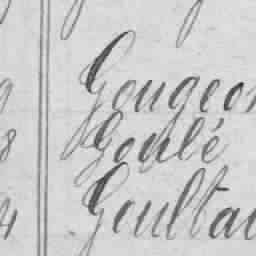 9 Gougeon
8 Goulé
4 Goultau